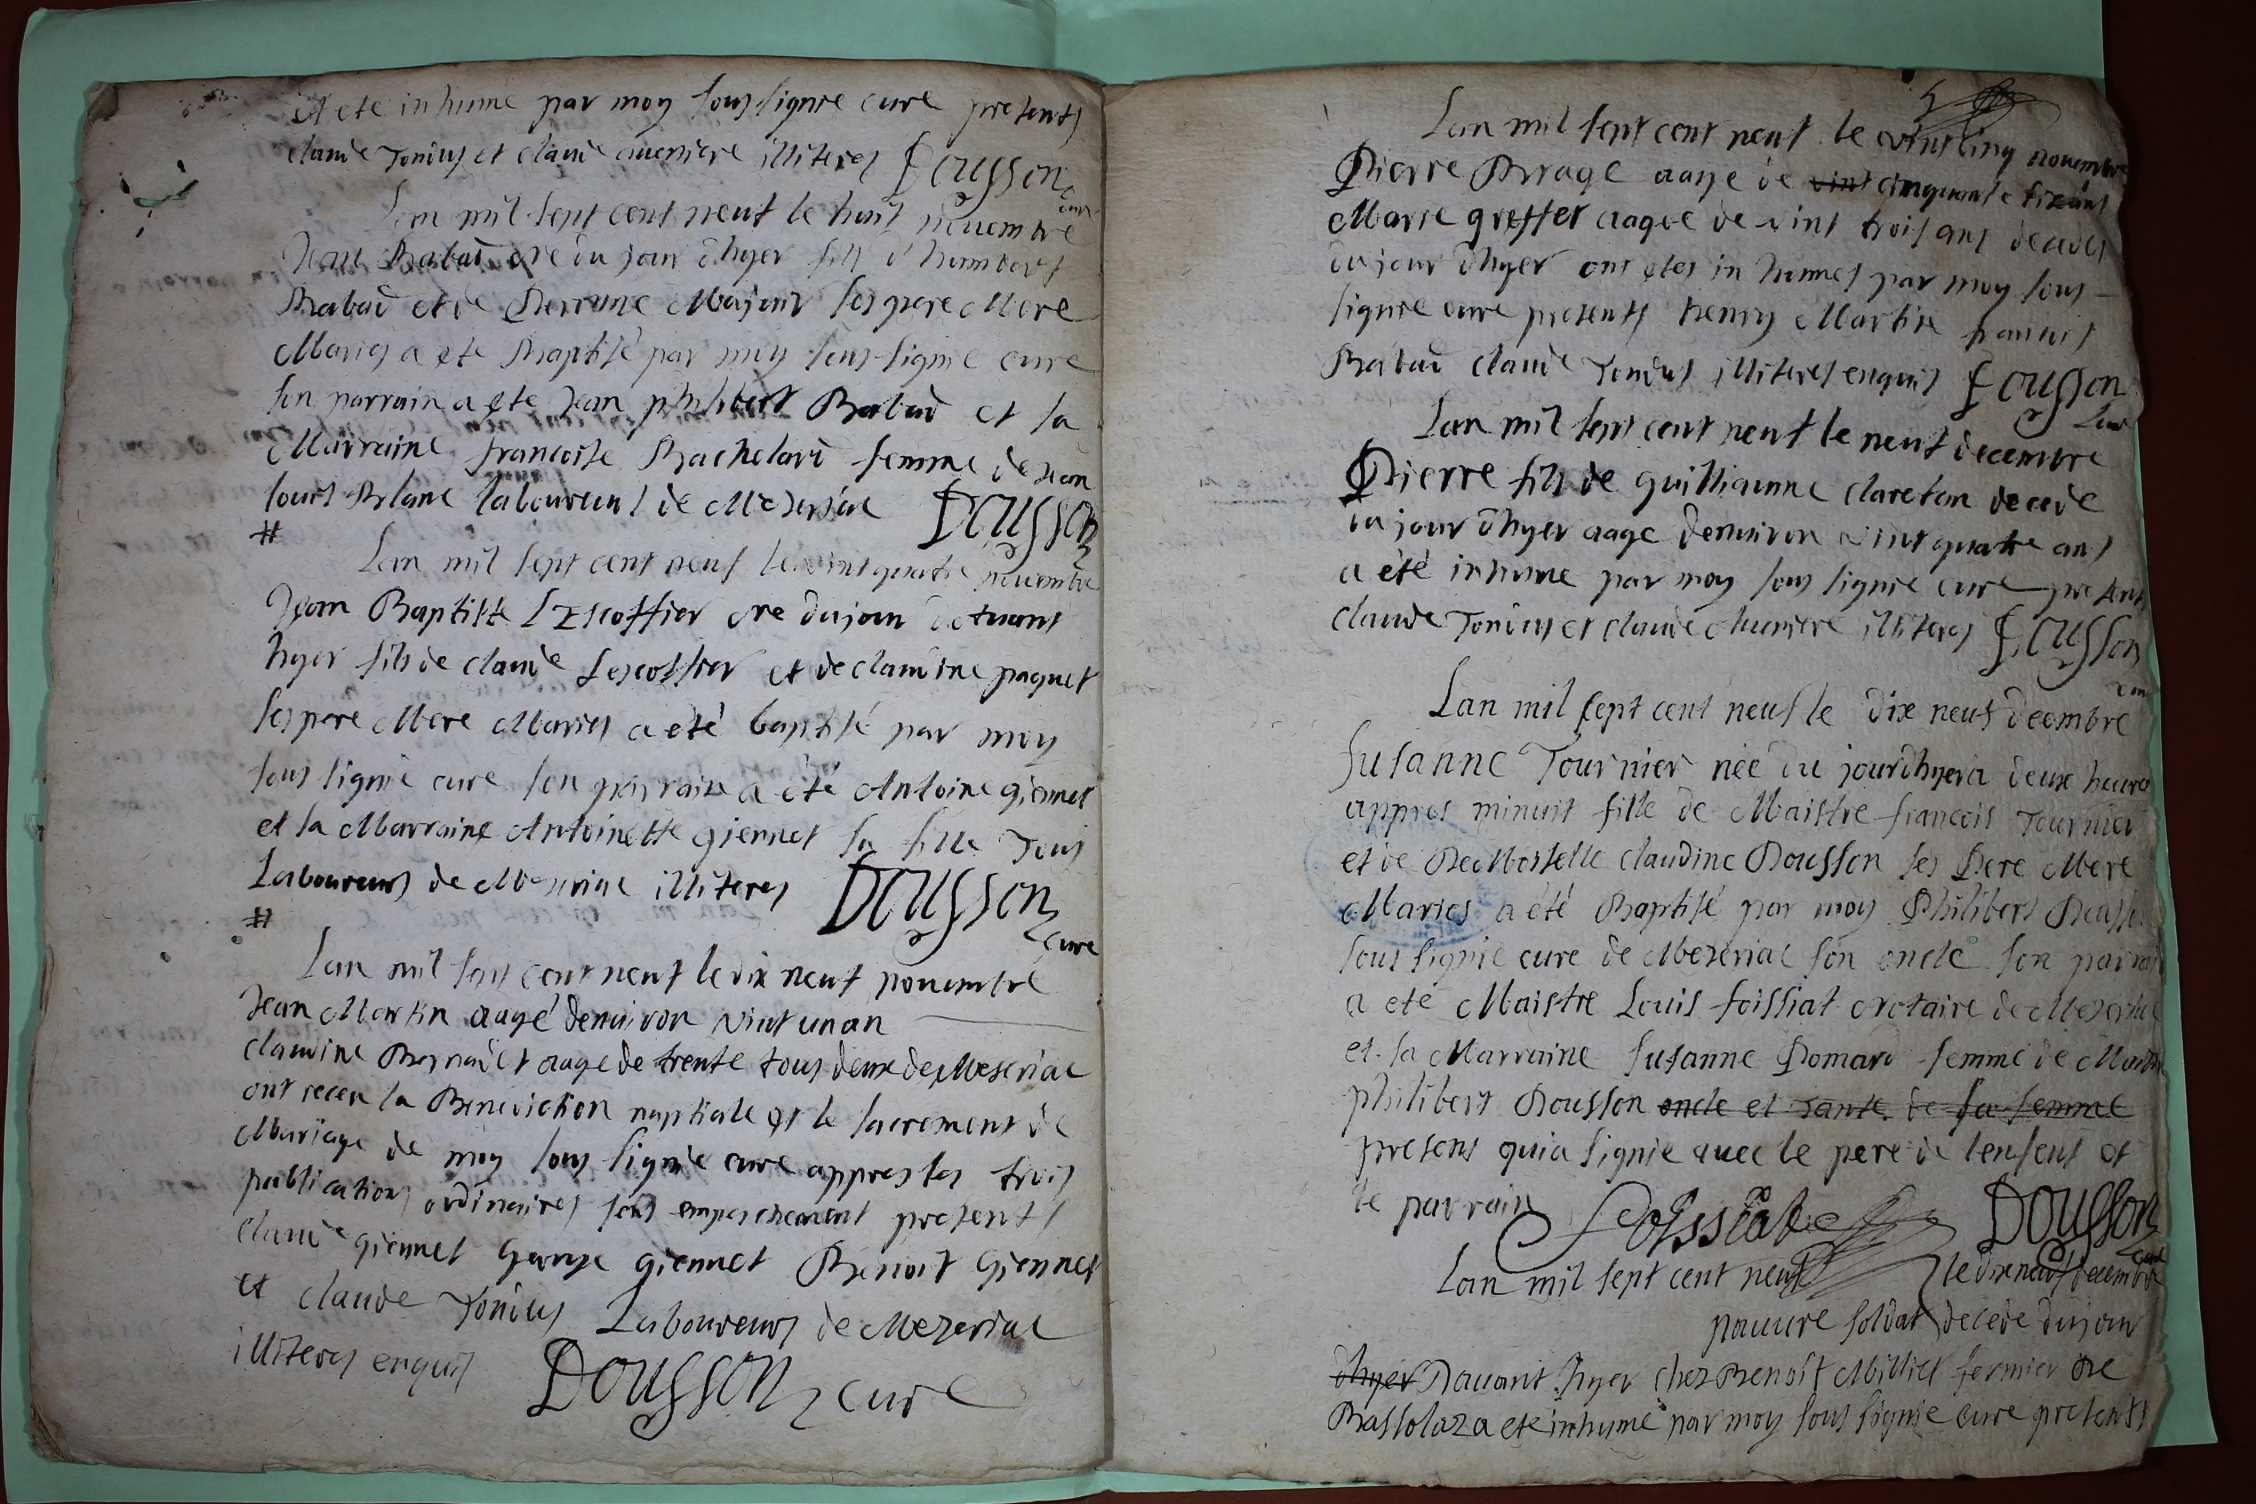 a ete inhume par moy sous signie cure presents
claude Tonius et claude illiteres Dousson
cure
Lan mil sept cent neuf le huit novembre
Jean Rabad ne du jour dhyer fils d'humbert
Rabad et de Perrine Majour ses pere Mere
Maries a ete Baptisé par moy sous signie cure
son parrain a ete Jean philibert Rabad et la
Marraine francoise Bachelard femme de Jean
louis Blanc laboureurs de Mezeriac Dousson
#
Lan mil sept cent neuf le vint quatre novembre
Jean Baptiste Lescoffier ne du jour devant
hyer fils de claude Lescoffier et de claudine paquet
ses pere Mere Maries a été baptisé par moy
sous signie cure son parrain a été Antoine giennet
et la Marraine Antoinette giennet sa fille Tous
Laboureurs de Mezeriac illiteres Dousson
# cure
Lan mil sept cent neuf le dix neuf novembre
Jean Martin aagé denviron vint un an
claudine aage de trente tous deux de Meseriac
ont receu la Benediction nuptiale et le sacrement de
Mariage de moy sous signie cure appres les trois
publications ordinaires sans empeschement presents
claude giennet george giennet Benoit giennet
et claude Tonius Laboureurs de Mezeriac
illiteres enquis Dousson cure
Lan mil sept cent neuf le vint cinq novembre
Pierre aage de vint cinquante six ans
Marie greffet aagée de vint trois ans decedes
du jour dhyer ont etes inhumes par moy sous
signie cure presents henry Martin francois
Rabad claude Tonius illiteres enquis Dousson
cure
Lan mil sept cent neuf le neuf decembre
Pierre fils de guilliaume claretan decede
du jour dhyer aage denviron vint quatre ans
a été inhume par moy sous signie cure presents
claude Tonius et claude illiteres Dousson
cure
Lan mil sept cent neuf le dix neuf decembre
Susanne Tournier née du jour dhyer a deux heures
appres minuit fille de Maistre francois Tournier
et de DeMoiselle claudine Dousson ses Pere Mere
Maries a été Baptisé par moy Philibert Dousson
sous signie cure de Mezeriac son oncle son parrain
a eté Maistre Louis foissiat Notaire de Mezeriac
et la Marraine Susanne Domard femme de
philibert Dousson oncle et Tante de sa femme
presens qui a signie avec le pere de lenfent et
le parrain Foissiat Dousson
cure
Lan mil sept cent neuf le dix neuf decembre
pauvre soldat decede du jour
dhyer Davant hyer chez Benoist Milliet fermier de
a ete inhume par moy sous signie cure presents